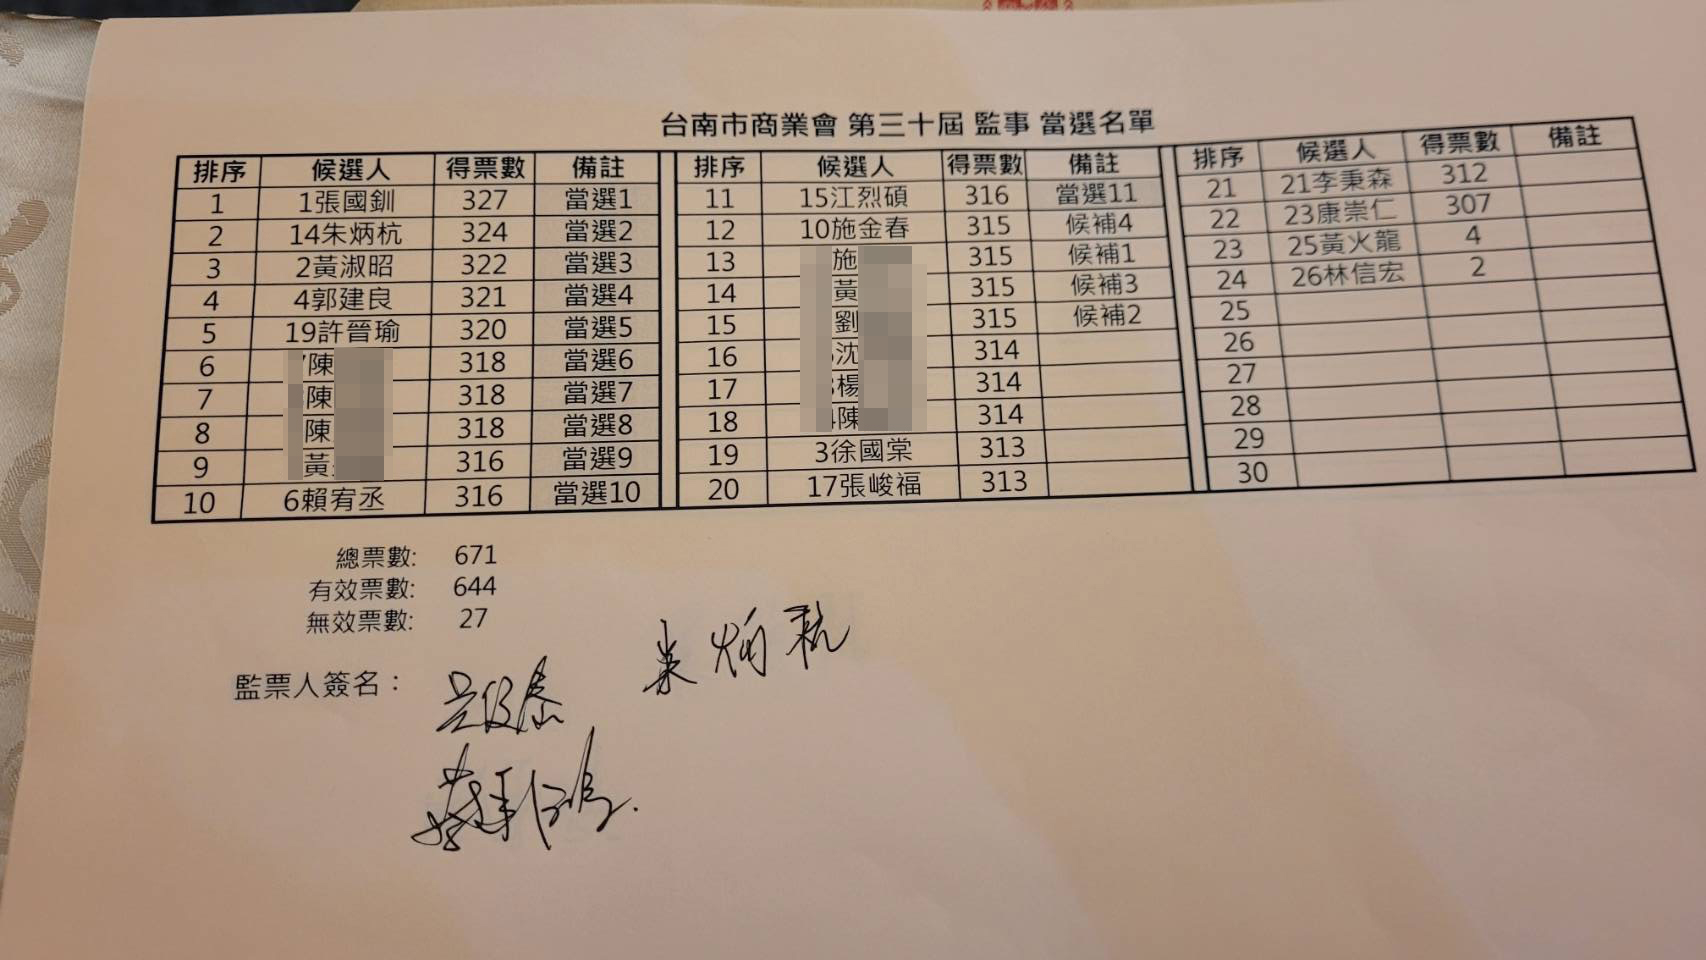 台南市商業會 第三十屆 監事 當選名單
排序 候選人 得票數 備註 排序 候選人 得票數 備註 排序 候選人 得票數 備註
1 1張國釧 327 當選1 11 15江烈碩 316 當選11 21 21李秉森 312
2 14朱炳杭 324 當選2 12 10施金春 315 候補4 22 23康崇仁 307
3 2黃淑昭 322 當選3 13 施 315 候補1 23 25黃火龍 4
4 4郭建良 321 當選4 14 黃 315 候補3 24 26林信宏 2
5 19許晉瑜 320 當選5 15 劉 315 候補2 25
6 陳 318 當選6 16 沈 314 26
7 陳 318 當選7 17 楊 314 27
8 陳 318 當選8 18 陳 314 28
9 黃 316 當選9 19 3徐國棠 313 29
10 6賴宥丞 316 當選10 20 17張峻福 313 30
總票數: 671
有效票數: 644
無效票數: 27
朱炳杭
監票人簽名：